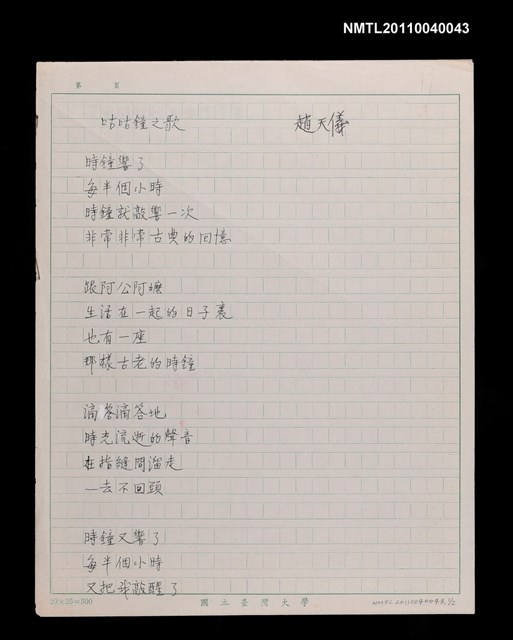 NMTL20110040043
第 頁
咕咕鐘之歌 趙天儀
時鐘響了
每半個小時
時鐘就敲響一次
非常非常古典的回憶
跟阿公阿嬤
生活在一起的日子裏
也有一座
那樣古老的時鐘
滴答滴答地
時光流逝的聲音
在指縫間溜走
一去不回頭
時鐘又響了
每半個小時
又把我敲醒了
20×25=500 國立臺灣大學